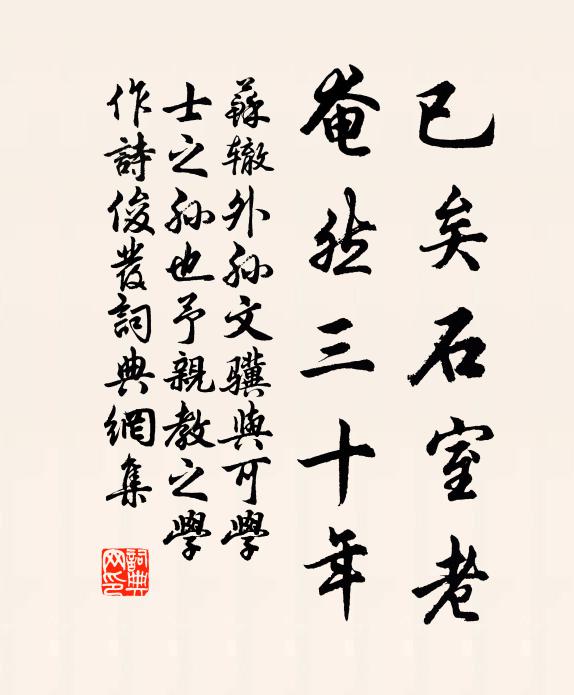 已矣石室老
奄然三十年
蘇辙外孙文驥與可學
士之孙也予親教之學
作詩俊發詞典網集
詞典网印